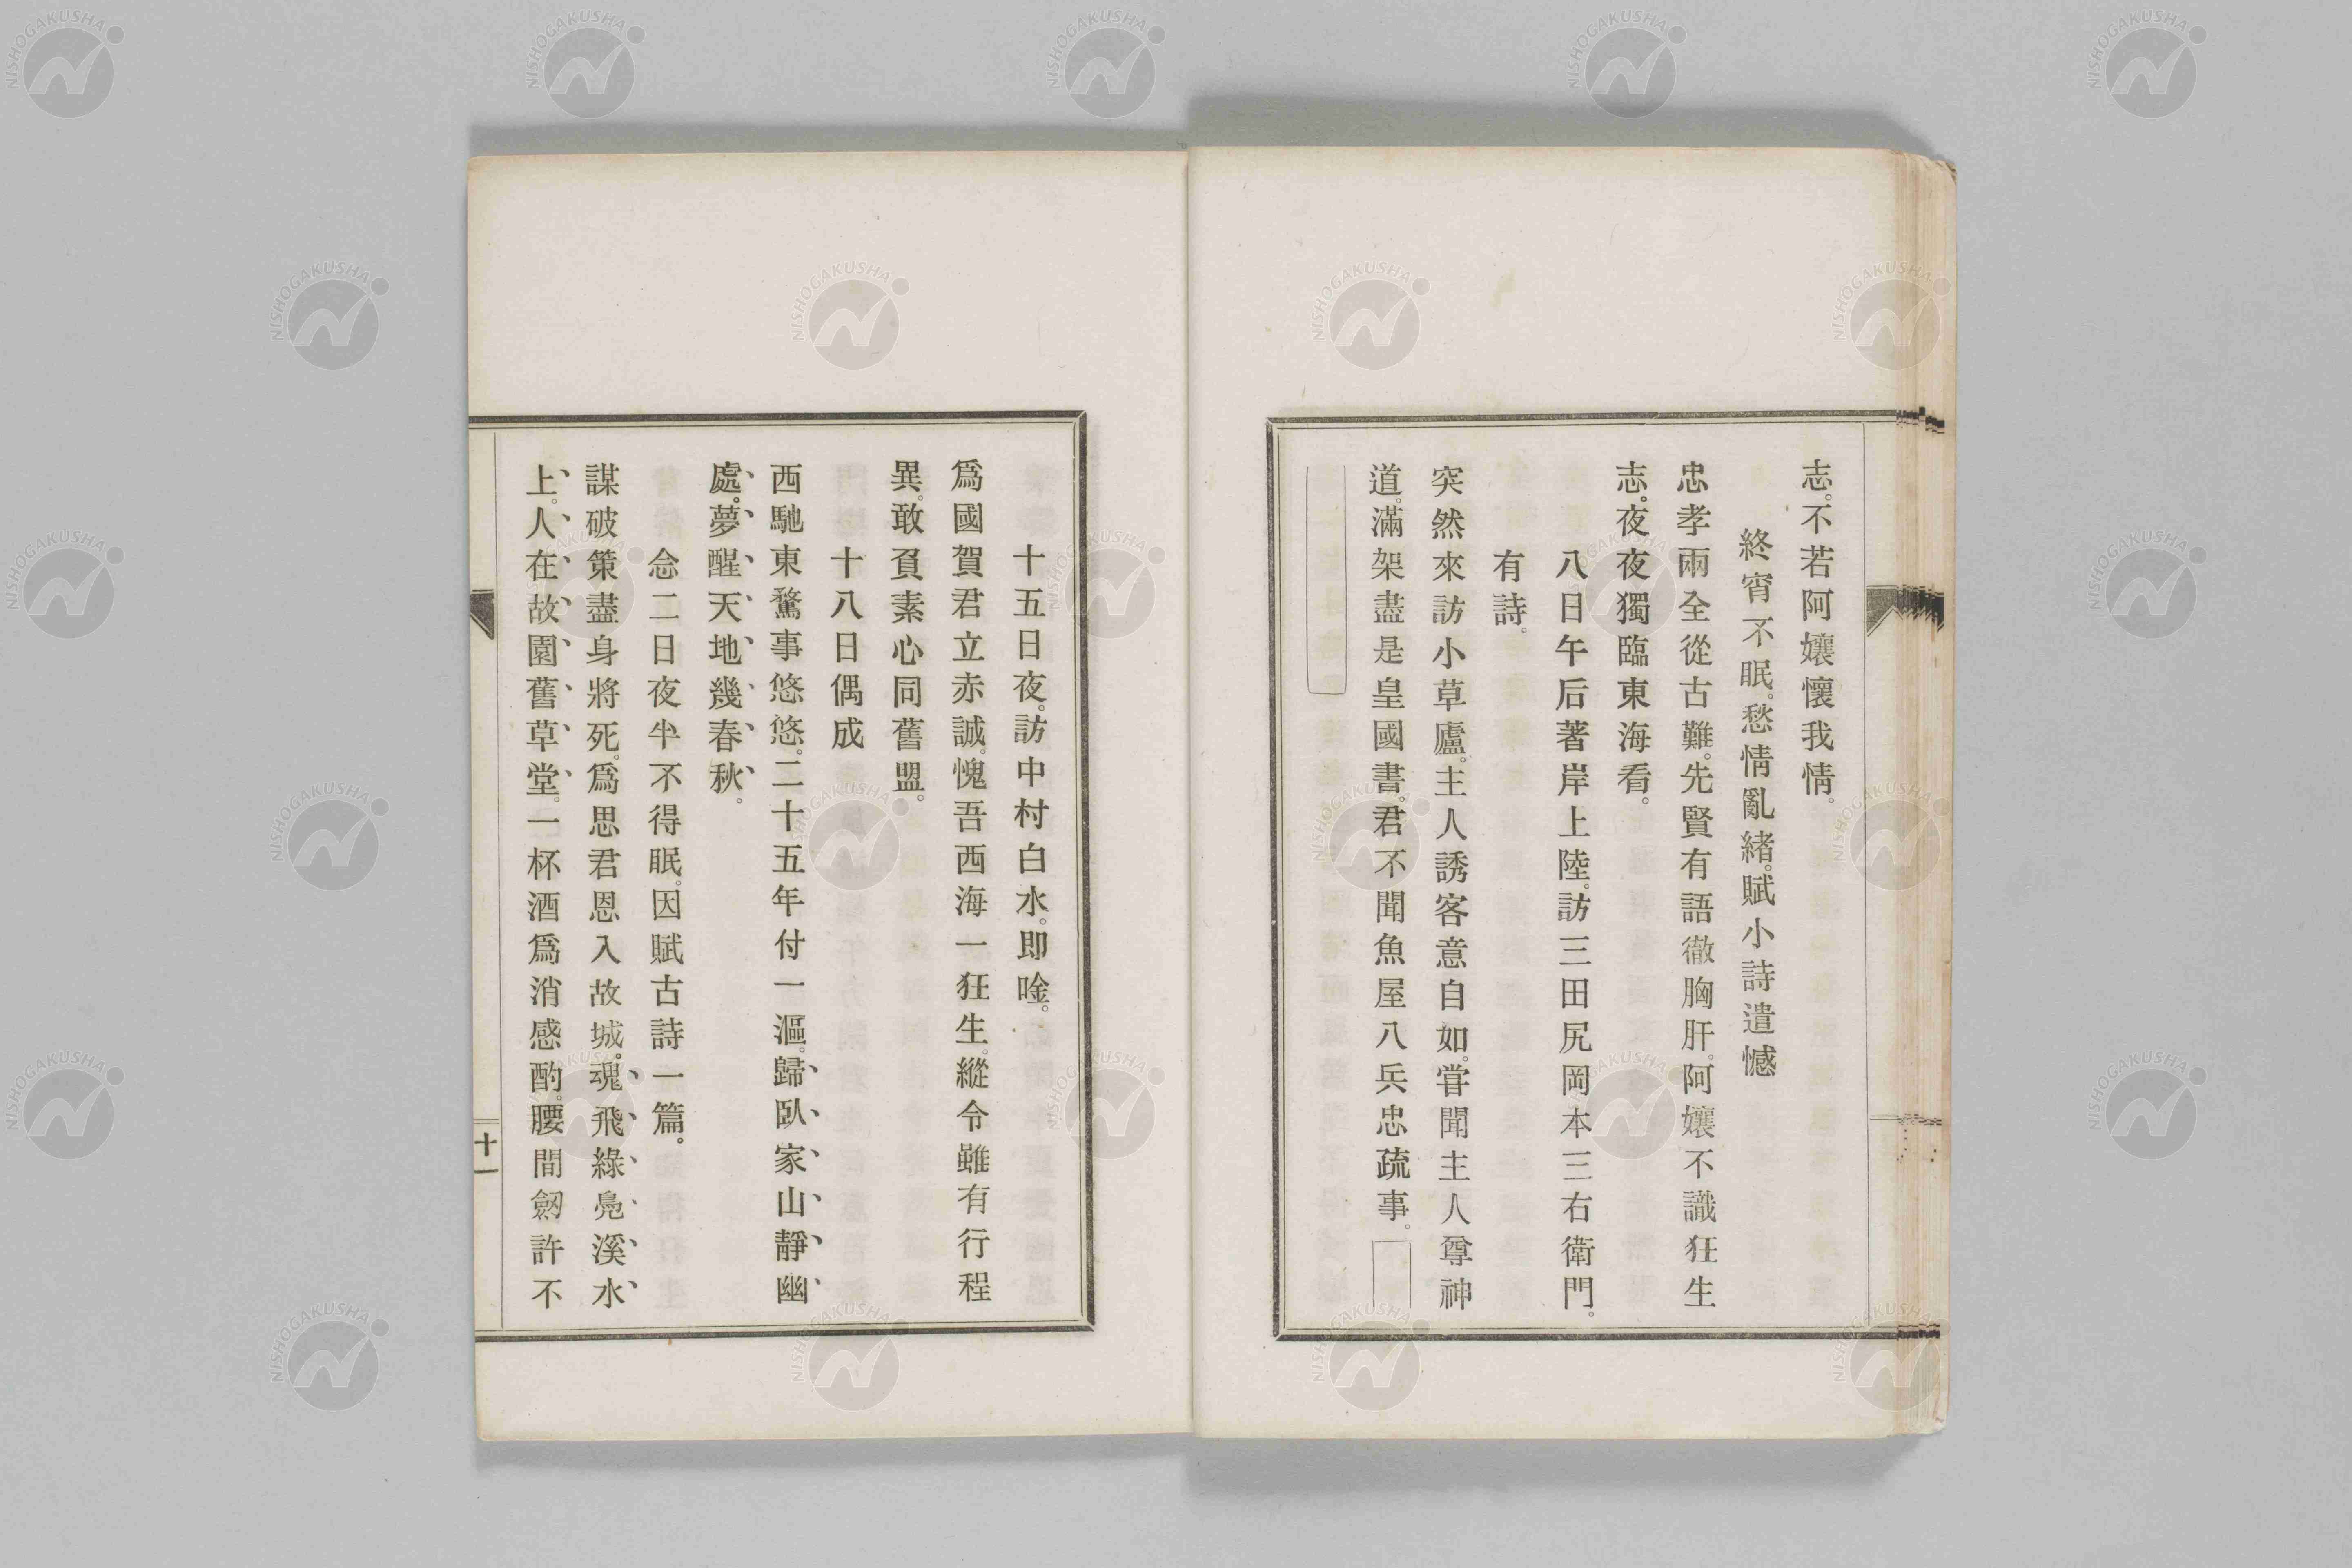 志。不若阿孃懷我情。
終宵不眠。愁情亂緒。賦小詩遣憾
忠孝兩全從古難。先賢有語徹胸肝。阿孃不識狂生
志。夜夜獨臨東海看。
八日午后著岸上陸。訪三田尻岡本三右衛門。
有詩。
突然來訪小草廬。主人誘客意自如。甞聞主人尊神
道。滿架盡是皇國書。君不聞魚屋八兵忠疏事。
十五日夜。訪中村白水。即唫。
爲國賀君立赤誠。愧吾西海一狂生。縱令雖有行程
異。敢負素心同舊盟。
十八日偶成
西馳東騖事悠悠。二十五年付一漚。歸臥家山靜幽
處。夢醒天地幾春秋。
念二日夜半不得眠。因賦古詩一篇。
謀破策盡身將死。爲思君恩入故城。魂飛綠鳧溪水
上。人在故園舊草堂。一杯酒爲消感酌。腰間劒許不
十一
NISHOGAKUSHA